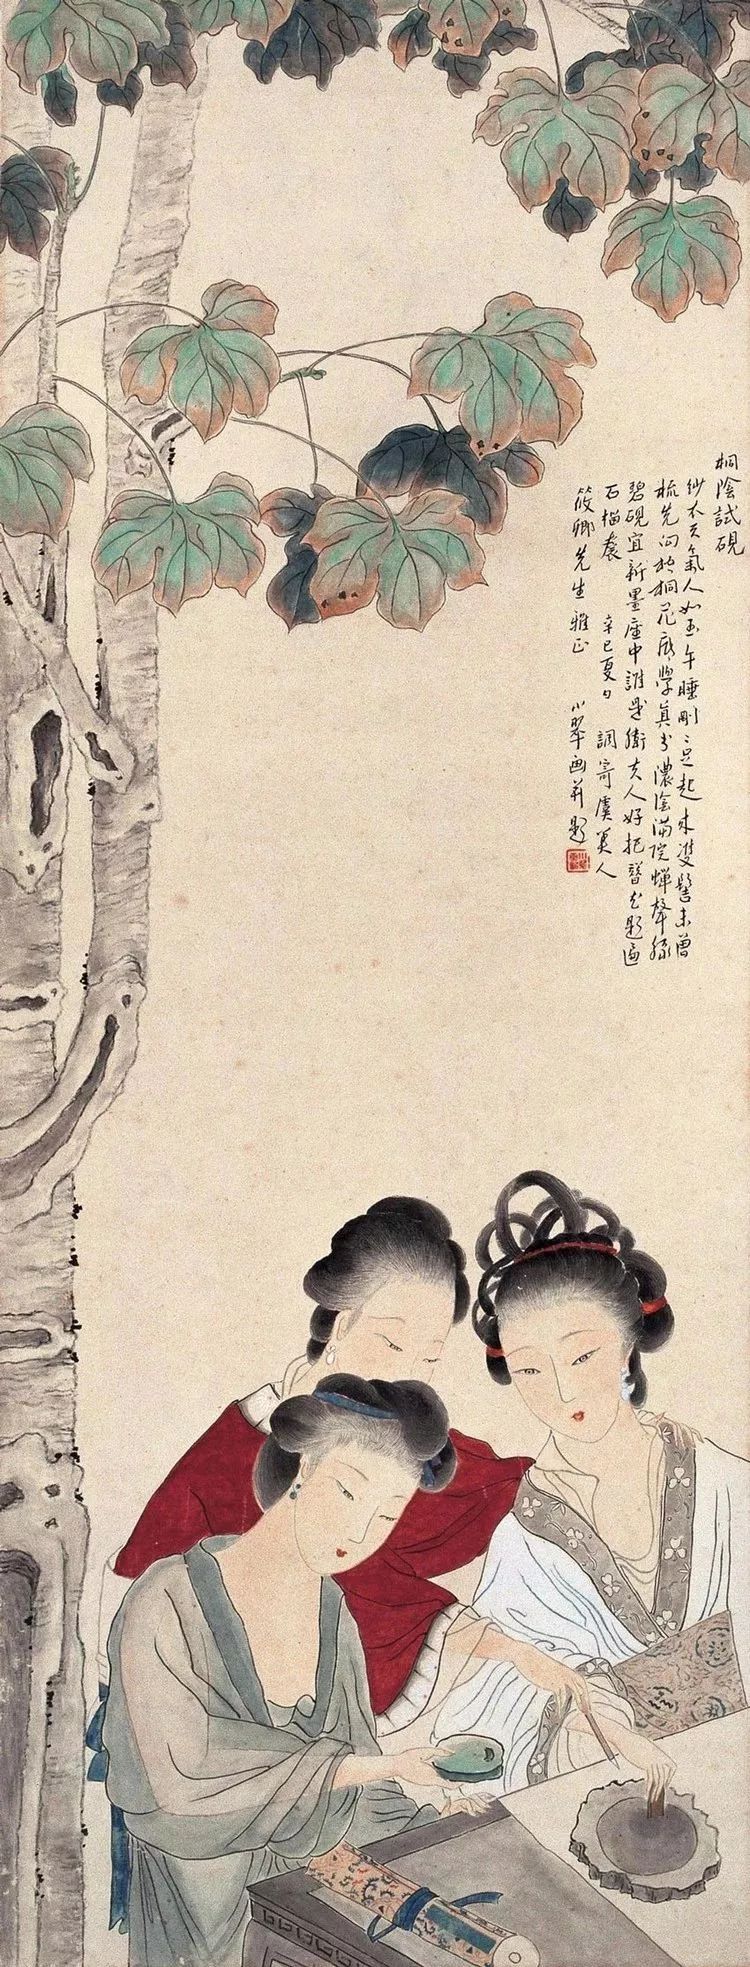 桐陰試硯
紗衣天氣人如玉午睡剛剛足起来雙鬟未曾
梳先向碧桐花底學真書濃陰滿院蟬聲緑
碧硯宜新墨座中誰是衛夫人好把簪花題遍
石榴裠 辛巳夏日 調寄虞美人
筱卿先生雅正 小翠画并題